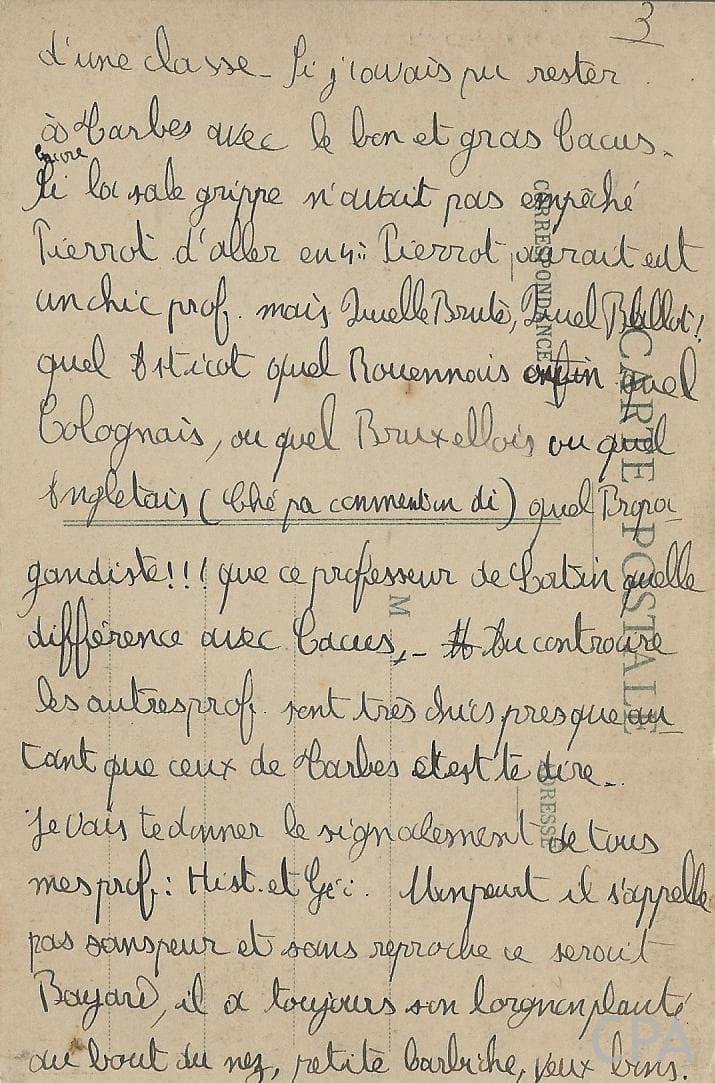 3
d'une classe - Si j'avais pu rester
à Tarbes avec le bon et gras Cacus -
Si la sale grippe n'avait pas empêché
Pierrot d'aller en 4è: Pierrot, aurait eut
un chic prof. mais Quelle Brute, Quel Ballot!
quel Asticot quel Rouennais enfin quel
Colognais, ou quel Bruxellois ou quel
Angletais (Ché pa comment on di) quel Propa-
gandiste!!! que ce professeur de Latin quelle
différence avec Cacus, - Au contraire
les autres prof. sont très chics, presque au-
tant que ceux de Tarbes c'est te dire -
Je vais te donner le signalement de tous
mes prof: Hist. et Géo. il s'appelle
pas sanspeur et sans reproche ce serait
Bayard, il a toujours son lorgnon planté
au bout du nez, petite barbiche, yeux
CARTE POSTALE
CORRESPONDANCE
M
ADRESSE
CPA